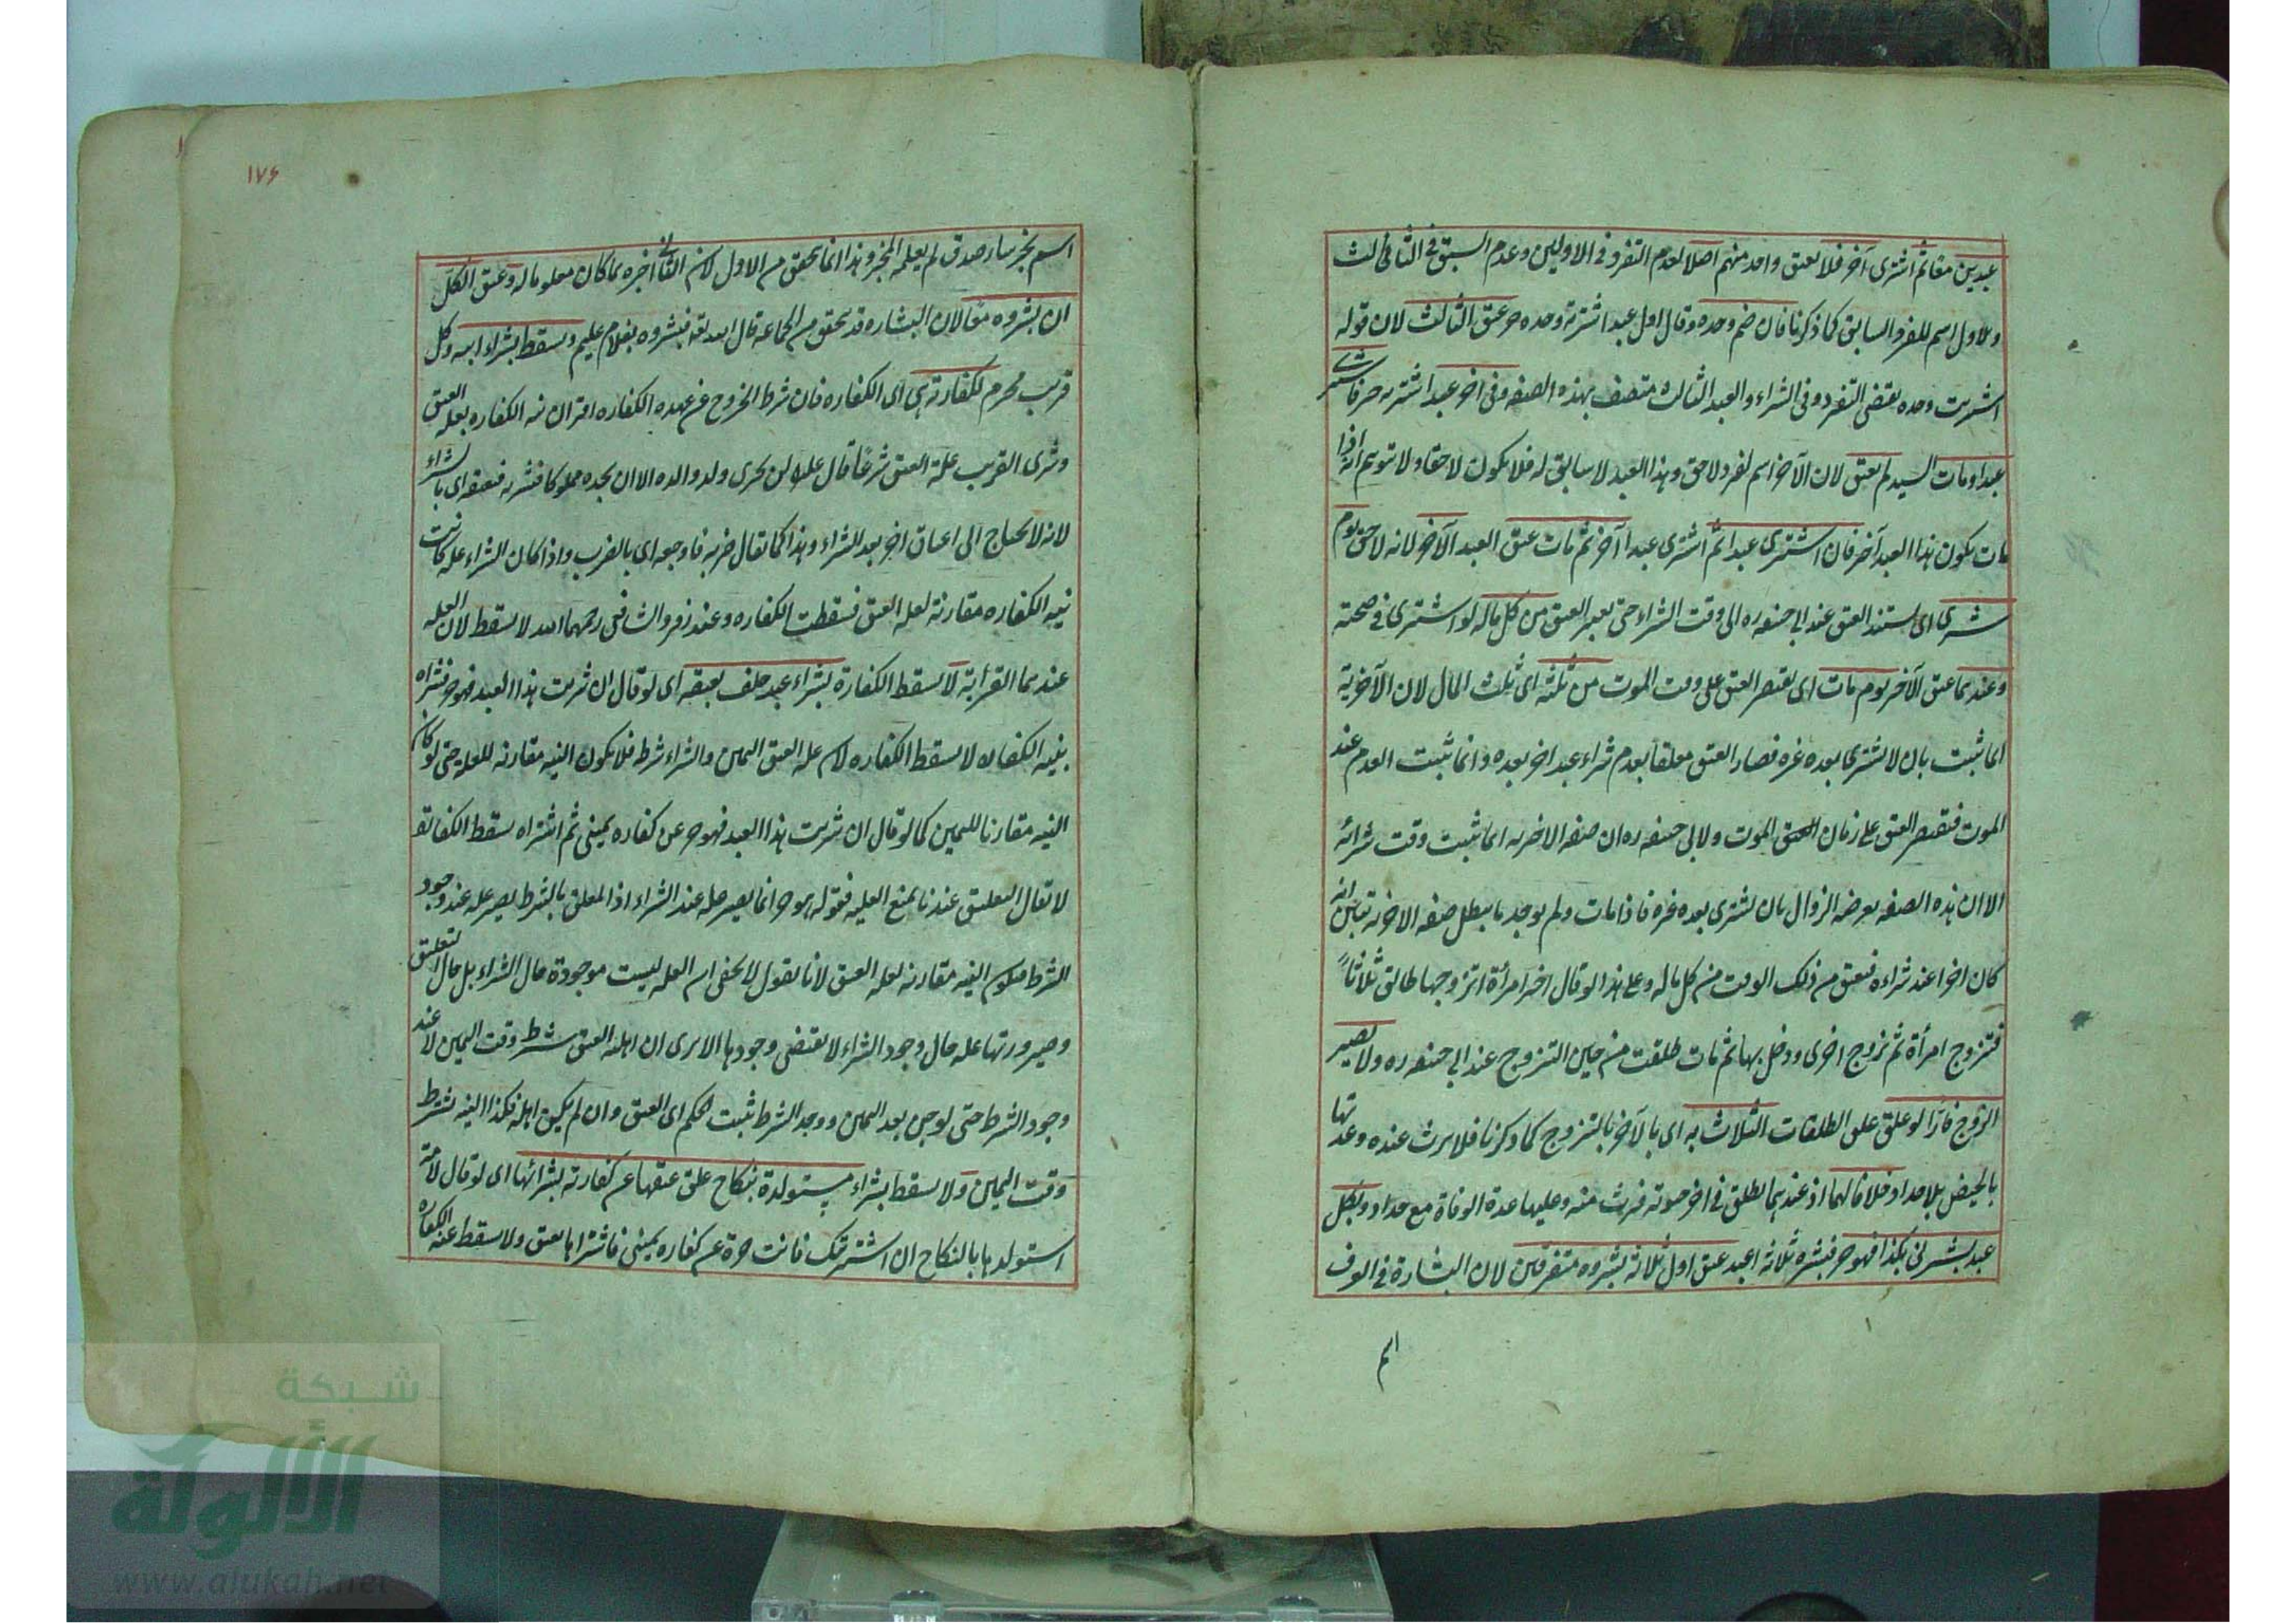 عبدين معا ثم اشترى آخر فلا يعتق واحد منهم اصلا لعدم التفرد فى الاولين وعدم السبق فى الثالث
والاول اسم للفرد السابق كما ذكرنا فان ضم وحده وقال اول عبد اشتريته وحده حر عتق الثالث لان قوله
اشتريت وحده يقتضى التفرد فى الشراء والعبد الثالث متصف بهذه الصفه وفى اخر عبد اشتريه حر فاشترى
عبدا ومات السيد لم يعتق لان الآخر اسم لفرد لاحق وهذا العبد لا سابق له فلا يكون لاحقا ولا يتوهم انه اذا
مات يكون هذا العبد آخر فان اشترى عبدا ثم اشترى عبدا آخر ثم مات عتق العبد الآخر لانه لاحق يوم
شرى اى يستند العتق عند ابى حنيفه ره الى وقت الشراء حتى يعتبر العتق من كل ماله لو اشترى فى صحته
وعندهما عتق الآخر يوم مات اى يقتصر العتق على وقت الموت من ثلثه اى ثلث المال لان الآخرية
انما ثبت بان لا يشترى بعده غره فصار العتق معلقا بعدم شراء عبد اخر بعده وانما ثبت العدم عند
الموت فيقتصر العتق على زمان الموت ولابى حنيفه ره ان صفه الاخريه انما ثبت وقت شرائه
الا ان هذه الصفه يعرضه الزوال بان يشترى بعده غره فاذا مات ولم يوجد ما يبطل صفه الاخريه تبين انه
كان اخرا عند شراءه فيعتق من ذلك الوقت من كل ماله وعلى هذا لو قال اخر امرأة اتزوجها طالق ثلاثا
فتزوج امرأة ثم تزوج اخرى ودخل بها ثم مات طلقت من حين التزوج عند ابى حنيفه ره ولا يصير
الزوج فارا لو علق الطلقات الثلاث به اى بالآخر بالتزوج كما ذكرنا فلا يرث عنده وعدتها
بالحيض بلا حداد خلافا لهما اذ عندهما يطلق فى اخر حيوته فترث منه وعليها عدة الوفاة مع حداد وبكل
عبد بشرنى بكذا فهو حر فبشره ثلاثه اعبد عتق اول ثلاثة بشروه متفرقين لان البشارة فى العرف
اسم
١٧٦
اسم بخبر سار صدق لم يعلمه المخبر وهذا انما يتحقق من الاول لان الثانى اخبره بما كان معلوما له وعتق الكل
ان بشروه معا لان البشاره قد يتحقق من الجماعه قال الله تعه فبشروه بغلام عليم وسقط بشراء ابيه وكل
قريب محرم لكفارته هى اى الكفاره فان شرط الخروج عن عهده الكفاره اقتران نيه الكفاره بعله العتق
وشرى القريب علة العتق شرعا قال عليه لن يجزى ولد والده الا ان يجده مملوكا فيشتريه فيعتقه اى بالشراء
لانه لا يحتاج الى اعتاق اخر بعد الشراء وهذا كما يقال ضربه فاوجعه اى بالضرب واذا كان الشراء عله كانت
نيه الكفاره مقارنة لعله العتق فسقطت الكفاره وعند زفر والشافعى رحمهما الله لا يسقط لان العله
عندهما القرابة لا يسقط الكفارة بشراء عبد حلف بعتقه اى لو قال ان شريت هذا العبد فهو حر فشراه
بنيه الكفاره لا يسقط الكفاره لان عله العتق اليمين والشراء شرط فلا يكون النيه مقارنه للعله حتى لو كان
النيه مقارنا لليمين كما لو قال ان شريت هذا العبد فهو حر عن كفاره يمينى ثم اشتراه يسقط الكفاره
لا يقال التعليق عندنا يمنع العليه فقوله هو حر انما يصير عله عند الشراء اذ المعلق بالشرط يصير عله عند وجود
الشرط فيكون النيه مقارنه لعله العتق لانا نقول لا يخفى ان العله ليست موجودة حال الشراء بل حال التعليق
وصيرورتها عله حال وجود الشراء لا يقتضى وجودها الا يرى ان اهليه العتق شرط وقت اليمين لا عند
وجود الشرط حتى لو جن بعد اليمين ووجد الشرط ثبت الحكم اى العتق وان لم يكن اهلا فكذا النيه يشترط
وقت اليمين ولا يسقط بشراء مستولدة بنكاح علق عتقها عن كفارته بشرائها اى لو قال لامة
استولدها بالنكاح ان اشتريتك فانت حرة عن كفاره يمينى فاشتراها يعتق ولا يسقط عنه الكفاره
شبكة
الألوكة
www.alukah.net